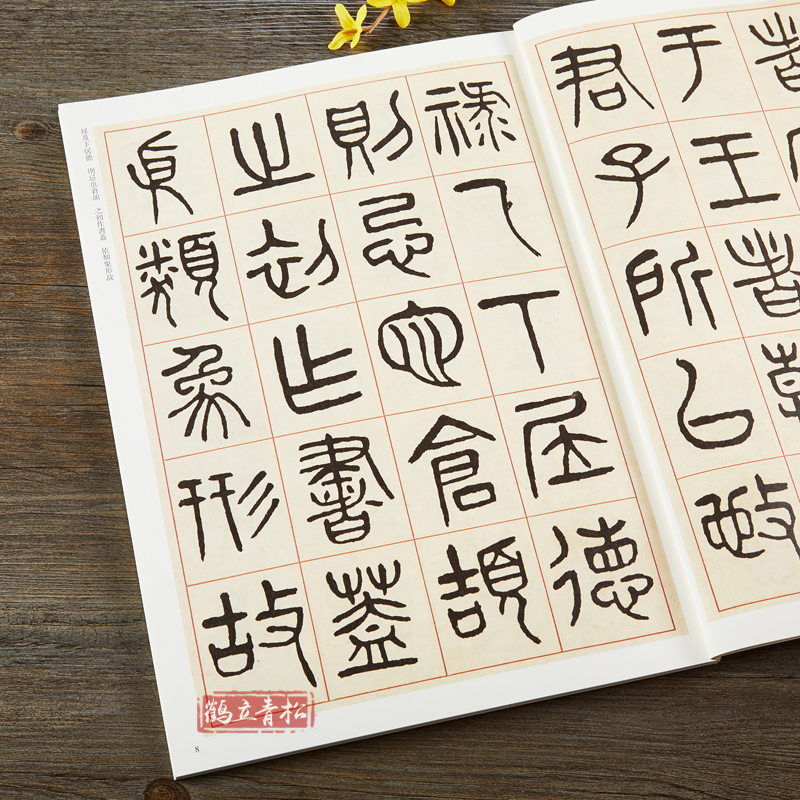 于王者朝
君子所以施
祿及下居德
則忌也倉頡
之初作書蓋
依類象形故
禄及下居德 則忌也倉頡 之初作書蓋 依類象形故
8
鹤立青松